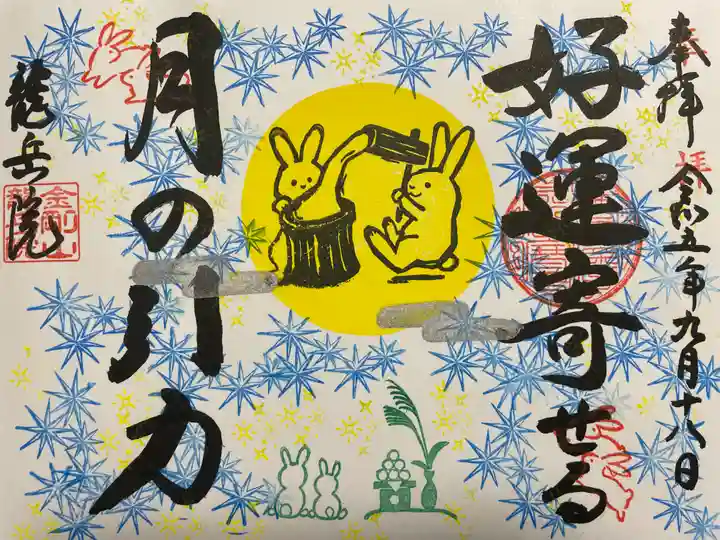 奉拝
令和五年九月十八日
好運寄せる
月の引力
龍岳院